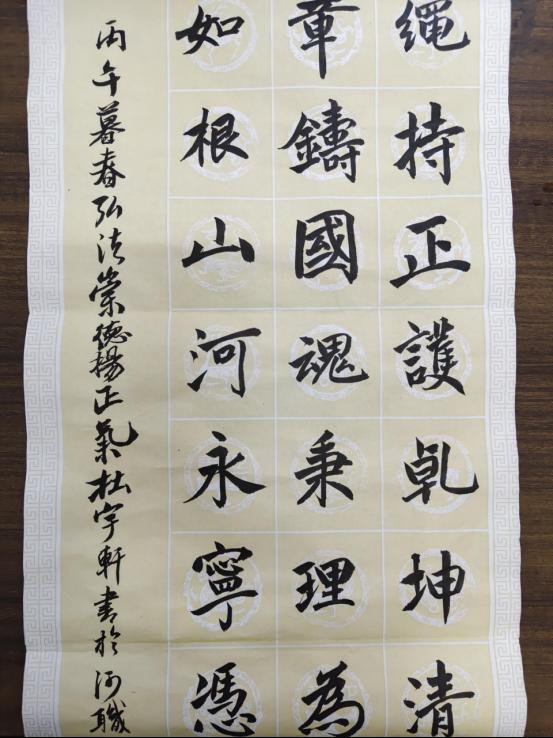 繩持正護乹坤清
章鑄國魂秉理為
如根山河永寧憑
丙午暮春弘法崇德楊正氣杜宇軒書於河職